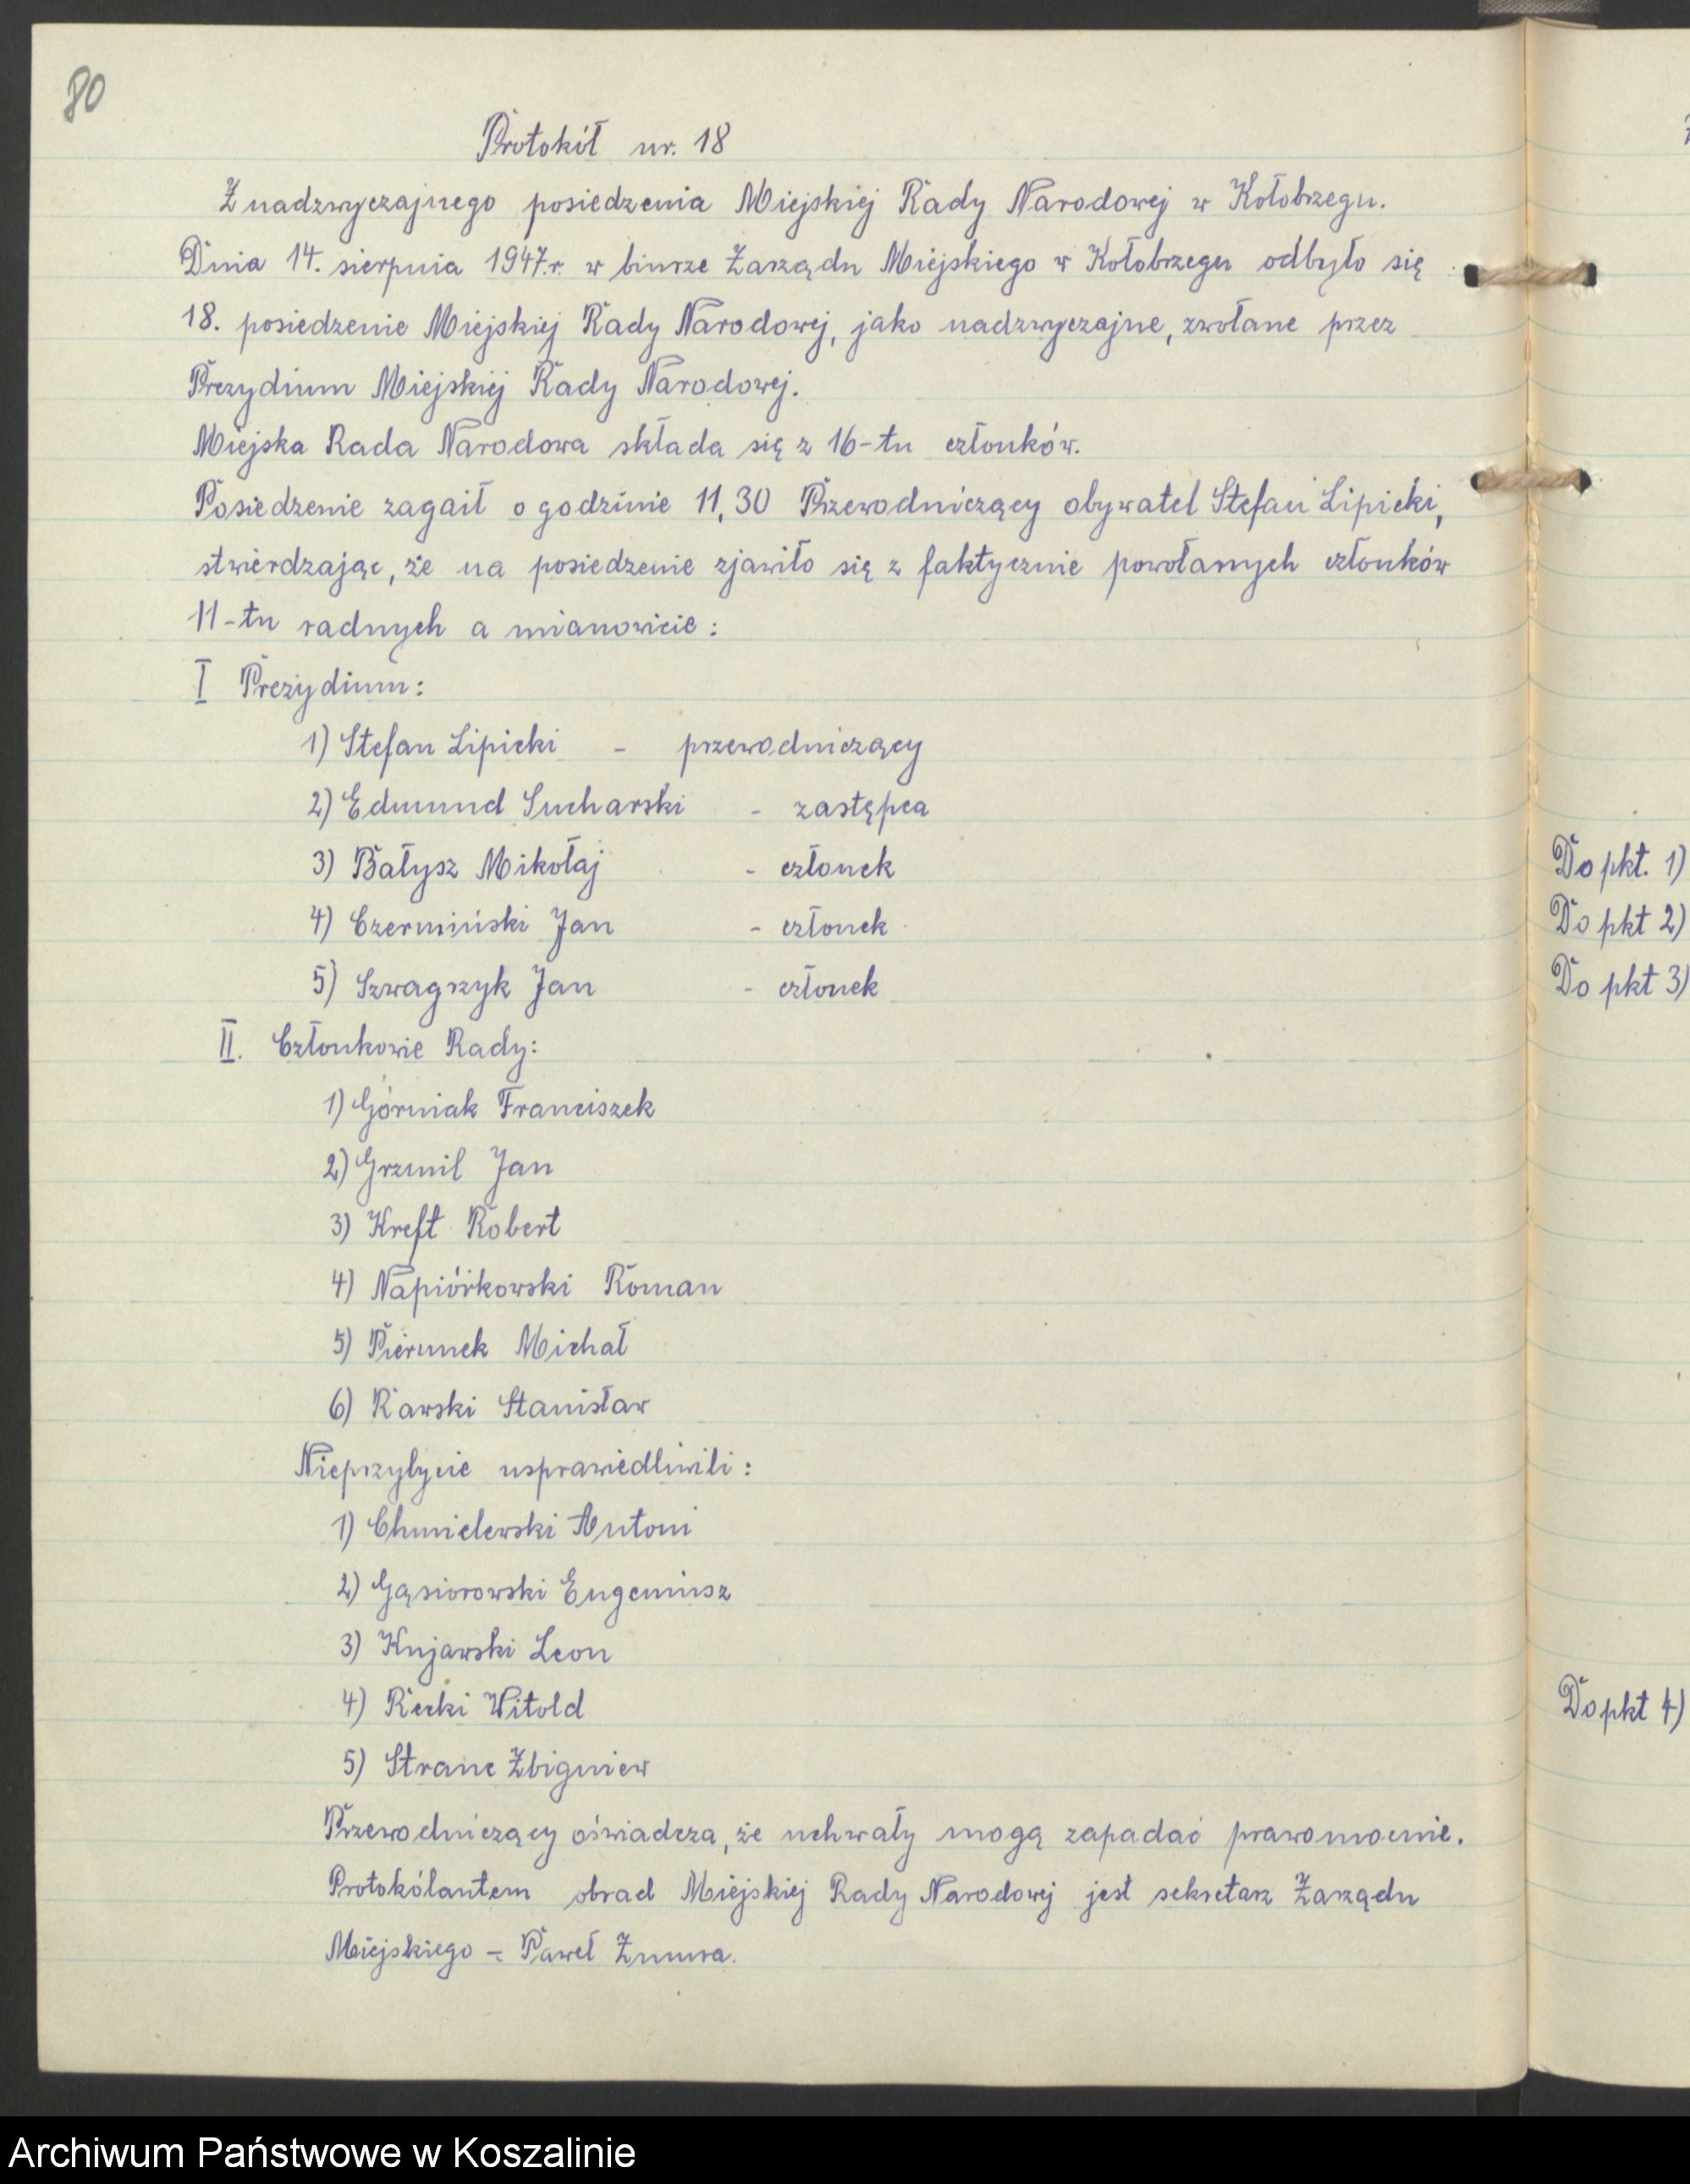 80
Protokół nr. 18
Z nadzwyczajnego posiedzenia Miejskiej Rady Narodowej w Kołobrzegu.
Dnia 14. sierpnia 1947.r. w biurze Zarządu Miejskiego w Kołobrzegu odbyło się
18. posiedzenie Miejskiej Rady Narodowej, jako nadzwyczajne, zwołane przez
Prezydium Miejskiej Rady Narodowej.
Miejska Rada Narodowa składa się z 16-tu członków.
Posiedzenie zagaił o godzinie 11,30 Przewodniczący obywatel Stefan Lipicki,
stwierdzając, że na posiedzenie zjawiło się z faktycznie powołanych członków
11-tu radnych a mianowicie:
I Prezydium:
1) Stefan Lipicki - przewodniczący
2) Edmund Sucharski - zastępca
3) Bałysz Mikołaj - członek
4) Czermiński Jan - członek
5) Szwagrzyk Jan - członek
II. Członkowie Rady:
1) Górniak Franciszek
2) Grzmil Jan
3) Kreft Robert
4) Napiórkowski Roman
5) Pierunek Michał
6) Rawski Stanisław
Nieprzybycie usprawiedliwili:
1) Chmielewski Antoni
2) Gąsiorowski Eugeniusz
3) Kujawski Leon
4) Recki Witold
5) Stranc Zbigniew
Przewodniczący oświadcza, że uchwały mogą zapadać prawomocnie.
Protokólantem obrad Miejskiej Rady Narodowej jest sekretarz Zarządu
Miejskiego - Paweł Zmura.
Do pkt. 1)
Do pkt 2)
Do pkt 3)
Do pkt 4)
Archiwum Państwowe w Koszalinie